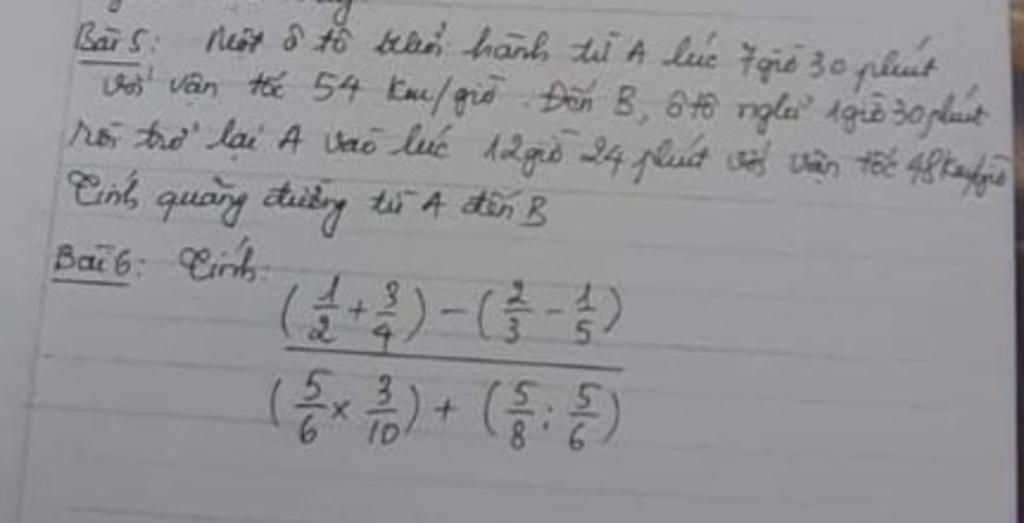 Bài 5: Một ô tô khởi hành từ A lúc 7 giờ 30 phút
với vận tốc 54 km/giờ. Đến B, ô tô nghỉ 1 giờ 30 phút
rồi trở lại A vào lúc 12 giờ 24 phút với vận tốc 48 km/giờ
Tính quãng đường từ A đến B
Bài 6: Tính:
(1/2 + 3/4) - (2/3 - 1/5)
(5/6 × 3/10) + (5/8 : 5/6)